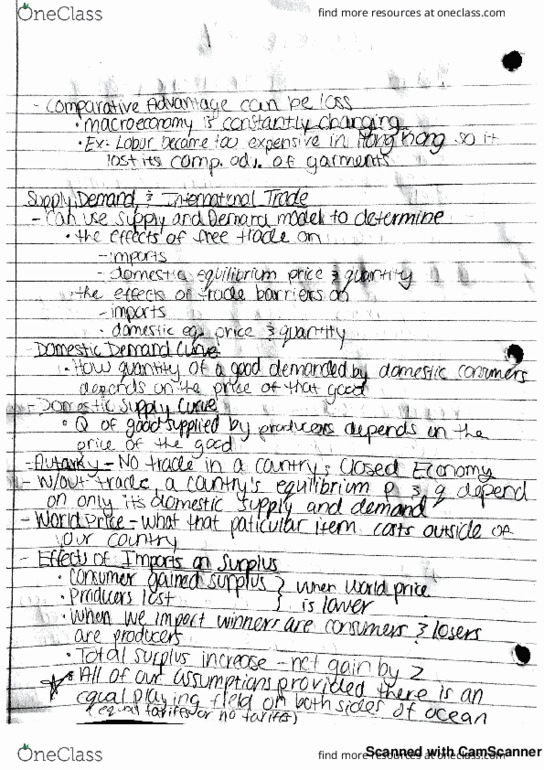 OneClass
find more resources at oneclass.com
- Comparative Advantage can be loss
• macroeconomy is constantly changing
• Ex: Labor became too expensive in Hong Kong so it
lost its comp. adv. of garments
Supply, Demand, & International Trade
- Can use Supply and Demand model to determine
• the effects of free trade on
- imports
- domestic equilibrium price & quantity
the effects of trade barriers on
- imports
• domestic eq. price & quantity
- Domestic Demand Curve
• How quantity of a good demanded by domestic consumers
depends on the price of that good
- Domestic Supply Curve
• Q of good supplied by producers depends on the
price of the good
- Autarky - No trade in a country; Closed Economy
- W/out trade, a country's equilibrium P & q depend
on only its domestic supply and demand
- World Price - what that paticular item costs outside of
our country
- Effects of Imports on Surplus
• Consumer gained surplus } when World price
• Producers lost } is lower
• When we import winners are consumers & losers
are producers
• Total surplus increase - net gain by 2
All of our assumptions provided there is an
equal playing field on both sides of ocean
(equal tariffs or no tariffs)
OneClass
find more resources at oneclass.com
Scanned with CamScanner